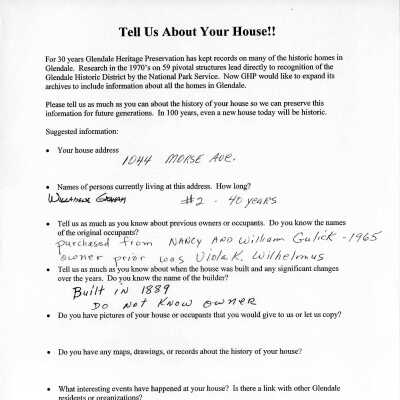 Tell Us About Your House!!
For 30 years Glendale Heritage Preservation has kept records on many of the historic homes in
Glendale. Research in the 1970's on 59 pivotal structures lead directly to recognition of the
Glendale Historic District by the National Park Service. Now GHP would like to expand its
archives to include information about all the homes in Glendale.
Please tell us as much as you can about the history of your house so we can preserve this
information for future generations. In 100 years, even a new house today will be historic.
Suggested information:
• Your house address
1044 MORSE AVE.
• Names of persons currently living at this address. How long?
#2 - 40 YEARS
• Tell us as much as you know about previous owners or occupants. Do you know the names
of the original occupants?
purchased from NANCY AND William Gulick - 1965
owner prior was Viola K. Wilhelmus
• Tell us as much as you know about when the house was built and any significant changes
over the years. Do you know the name of the builder?
Built in 1889
DO NOT KNOW OWNER
• Do you have pictures of your house or occupants that you would give to us or let us copy?
• Do you have any maps, drawings, or records about the history of your house?
• What interesting events have happened at your house? Is there a link with other Glendale
residents or organizations?